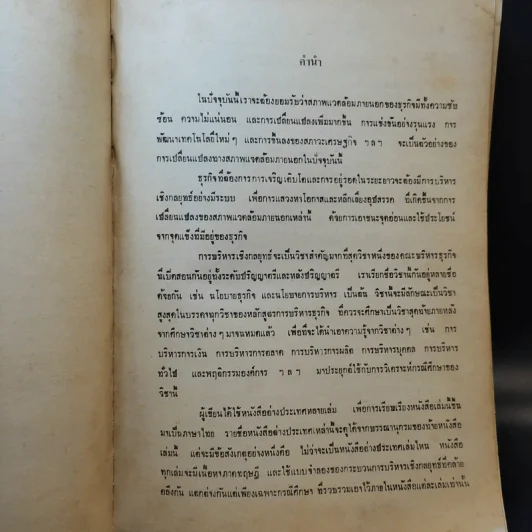 คำนำ
ในปัจจุบันนี้เราจะต้องยอมรับว่าสภาพแวดล้อมภายนอกของธุรกิจมีทั้งความซับ
ซ้อน ความไม่แน่นอน และการเปลี่ยนแปลงเพิ่มมากขึ้น การแข่งขันอย่างรุนแรง การ
พัฒนาเทคโนโลยีใหม่ๆ และการขึ้นลงของสภาวะเศรษฐกิจ ฯลฯ จะเป็นตัวอย่างของ
การเปลี่ยนแปลงทางสภาพแวดล้อมภายนอกในปัจจุบันนี้
ธุรกิจที่ต้องการการเจริญเติบโตและการอยู่รอดในระยะยาวจะต้องมีการบริหาร
เชิงกลยุทธ์อย่างมีระบบ เพื่อการแสวงหาโอกาสและหลีกเลี่ยงอุปสรรค ที่เกิดขึ้นจากการ
เปลี่ยนแปลงของสภาพแวดล้อมภายนอกเหล่านี้ ด้วยการเอาชนะจุดอ่อนและใช้ประโยชน์
จากจุดแข็งที่มีอยู่ของธุรกิจ
การบริหารเชิงกลยุทธ์จะเป็นวิชาสำคัญมากที่สุดวิชาหนึ่งของคณะบริหารธุรกิจ
ที่เปิดสอนกันอยู่ทั้งระดับปริญญาตรีและหลังปริญญาตรี เราเรียกชื่อวิชานี้กันอยู่หลายชื่อ
ด้วยกัน เช่น นโยบายธุรกิจ และนโยบายการบริหาร เป็นต้น วิชานี้จะมีลักษณะเป็นวิชา
สูงสุดในบรรดาทุกวิชาของหลักสูตรการบริหารธุรกิจ ที่ควรจะศึกษาเป็นวิชาสุดท้ายภายหลัง
จากศึกษาวิชาต่างๆมาจนหมดแล้ว เพื่อที่จะได้นำเอาความรู้จากวิชาต่างๆ เช่น การ
บริหารการเงิน การบริหารการตลาด การบริหารการผลิต การบริหารบุคคล การบริหาร
ทั่วไป และพฤติกรรมองค์การ ฯลฯ มาประยุกต์ใช้กับการวิเคราะห์กรณีศึกษาของ
วิชานี้
ผู้เขียนได้ใช้หนังสือต่างประเทศหลายเล่ม เพื่อการเรียบเรียงหนังสือเล่มนี้ขึ้น
มาเป็นภาษาไทย รายชื่อหนังสือต่างประเทศเหล่านี้จะดูได้จากบรรณานุกรมของท้ายหนังสือ
เล่มนี้ แต่จะมีข้อสังเกตุอย่างหนึ่งคือ ไม่ว่าจะเป็นหนังสือต่างประเทศเล่มไหน หนังสือ
ทุกเล่มจะมีเนื้อหาภาคทฤษฎี และใช้แบบจำลองของกระบวนการบริหารเชิงกลยุทธ์ที่คล้าย
คลึงกัน แตกต่างกันแต่เพียงเฉพาะกรณีศึกษา ที่รวบรวมเอาไว้ภายในหนังสือแต่ละเล่มเท่านั้น